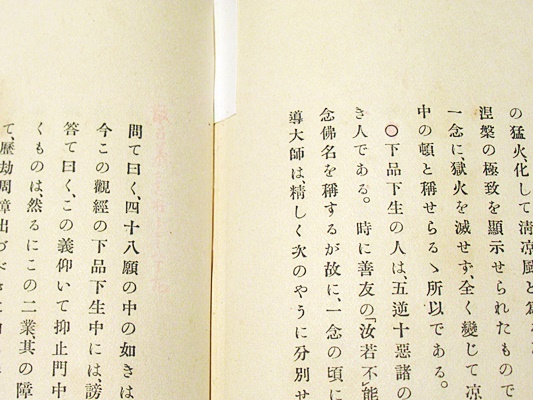 の猛火、化して淸凉風と爲
涅槃の極致を顯示せられたもので
一念に、獄火を滅せず、全く變じて凉
中の頓と稱せらるゝ所以である。
〇下品下生の人は、五逆十惡諸の
き人である。時に善友の「汝若不能
念佛名を稱するが故に、一念の頃に
導大師は、精しく次のやうに分別せ
問て曰く、四十八願の中の如きは
今この觀經の下品下生中には、謗
答て曰く、この義仰いて抑止門中
くものは、然るにこの二業其の障
て、歷劫周章出づべき